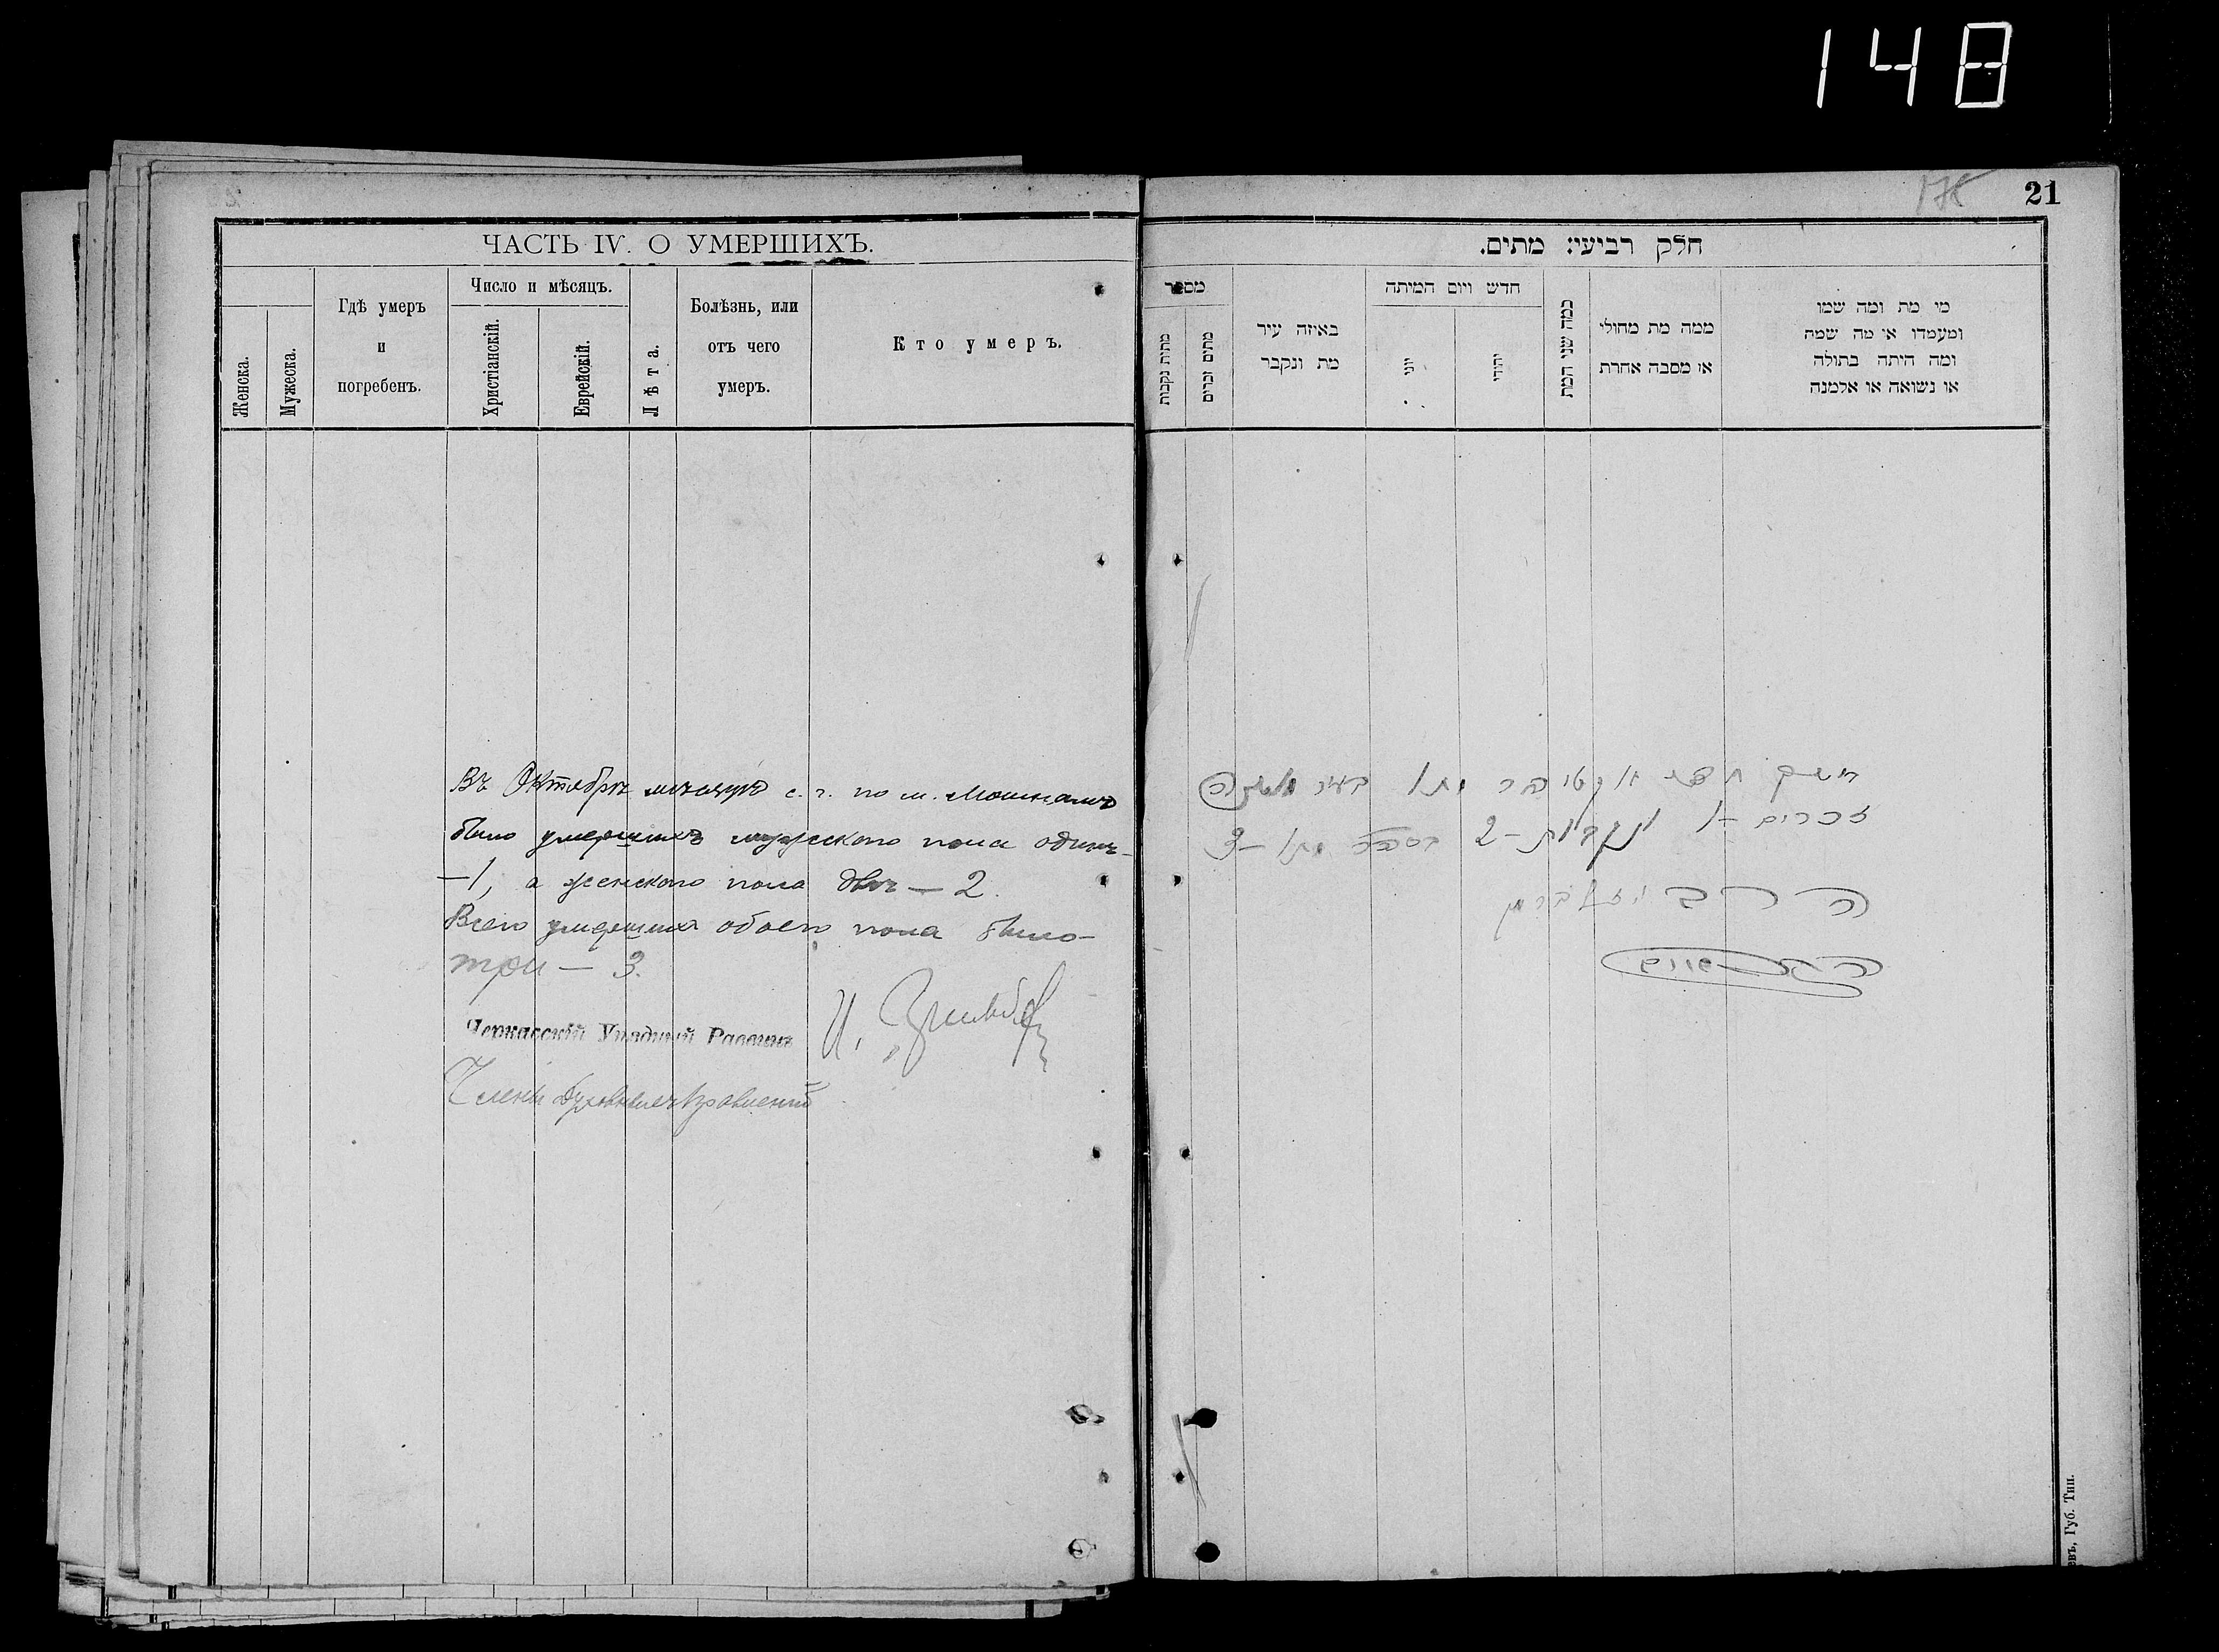 148
ЧАСТЬ IV. О УМЕРШИХЪ.
Женска.
Мужеска.
Гдѣ умеръ
и
погребенъ.
Число и мѣсяцъ.
Христіанскій.
Еврейскій.
Лѣта.
Болѣзнь, или
отъ чего
умеръ.
Кто умеръ.
Въ Октябрѣ мѣсяцѣ с. г. по м. Мошнамъ
было умершихъ мужескаго пола одинъ-
-1, а женскаго пола двѣ - 2.
Всего умершихъ обоего пола было-
три - 3.
Черкасскій Уѣздный Раввинъ
Члены Духовнаго Правленія
178
21
חלק רביעי: מתים.
מספר
מתות נקבות
מתים זכרים
באיזה עיר
מת ונקבר
חדש ויום המיתה
יוני
יהודי
כמה שני המת
ממה מת מחולי
או מסבה אחרת
מי מת ומה שמו
ומעמדו או מה שמה
ומה היתה בתולה
או נשואה או אלמנה
אקטיבר מתו בעיר
זכרים -1 ונקבות -2 מתו -3
הרב
евъ, Губ. Тип.